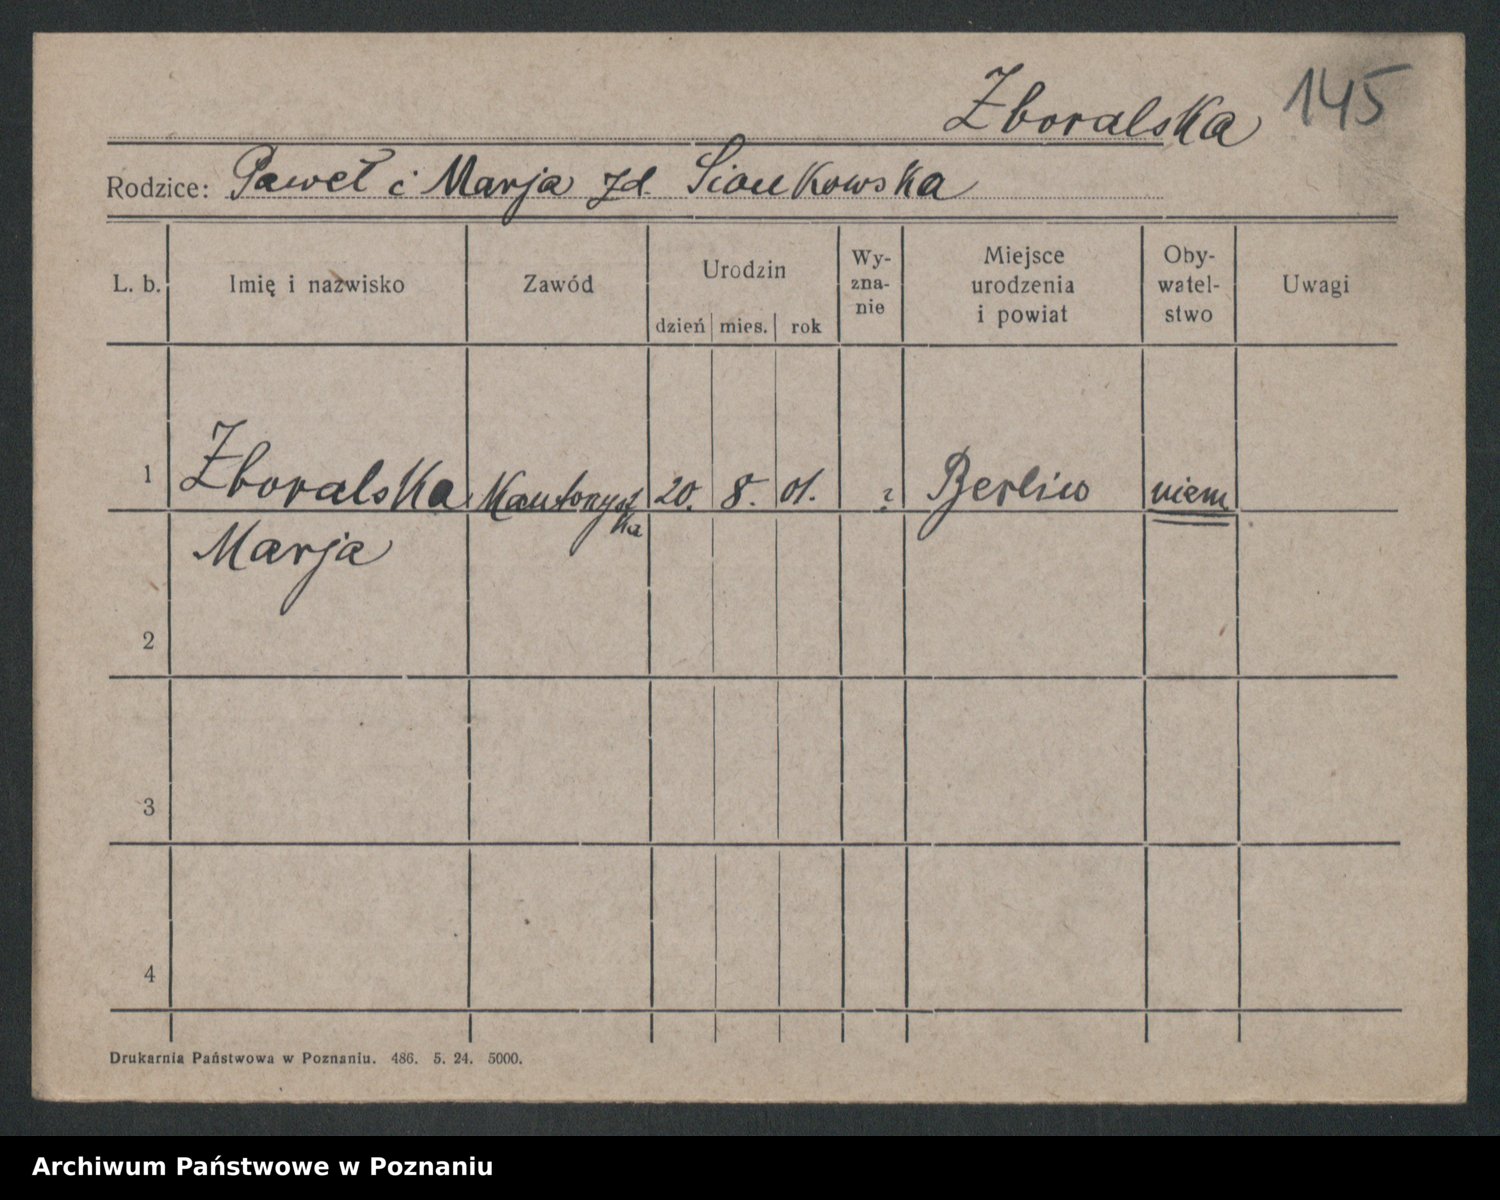 Zboralska 145
Rodzice: Paweł i Marja zd. Siankowska
L. b. Imię i nazwisko Zawód Urodzin dzień mies. rok Wy-zna-nie Miejsce urodzenia i powiat Oby-watel-stwo Uwagi
1 Zboralska Kantoryst 20. 8. 01. ? Berlin niem
ka
Marja
2
3
4
Drukarnia Państwowa w Poznaniu. 486. 5. 24. 5000.
Archiwum Państwowe w Poznaniu